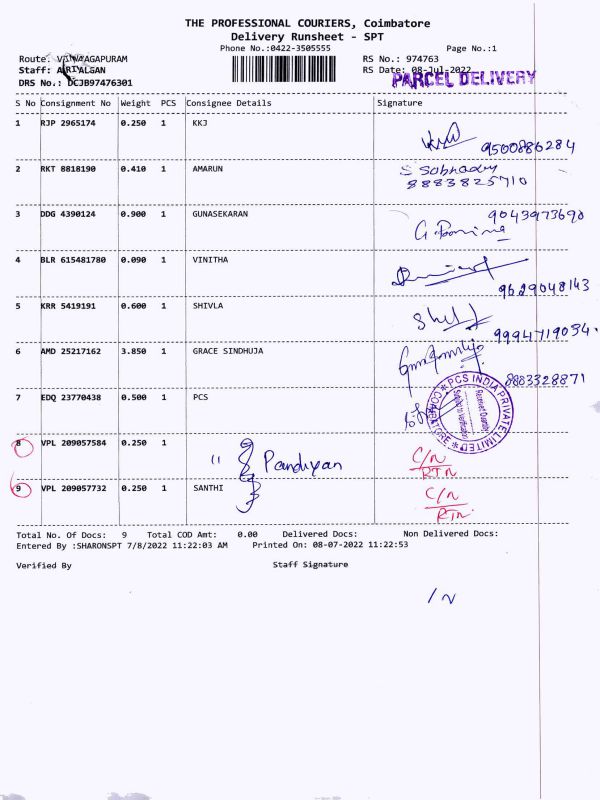 THE PROFESSIONAL COURIERS, Coimbatore
Delivery Runsheet - SPT
Phone No.:0422-3505555 Page No.:1
Route: RS No.: 974763
Staff: RS Date: 08-Jul-2022
PARCEL DELIVERY
DRS No.: DCJB97476301
S No Consignment No Weight PCS Consignee Details Signature
1 RJP 2965174 0.250 1 KKJ
9500886284
2 RKT 8818190 0.410 1 AMARUN
8883825710
3 DDG 4390124 0.900 1 GUNASEKARAN 9043973690
4 BLR 615481780 0.090 1 VINITHA
9629048143
5 KRR 5419191 0.600 1 SHIVLA
9994719034
6 AMD 25217162 3.850 1 GRACE SINDHUJA
8883328871
7 EDQ 23770438 0.500 1 PCS
PCS INDIA PRIVATE LIMITED COIMBATORE
8 VPL 209057584 0.250 1 " Pandiyan C/N
RTN
9 VPL 209057732 0.250 1 SANTHI C/N
RTN
Total No. Of Docs: 9 Total COD Amt: 0.00 Delivered Docs: Non Delivered Docs:
Entered By :SHARONSPT 7/8/2022 11:22:03 AM Printed On: 08-07-2022 11:22:53
Verified By Staff Signature